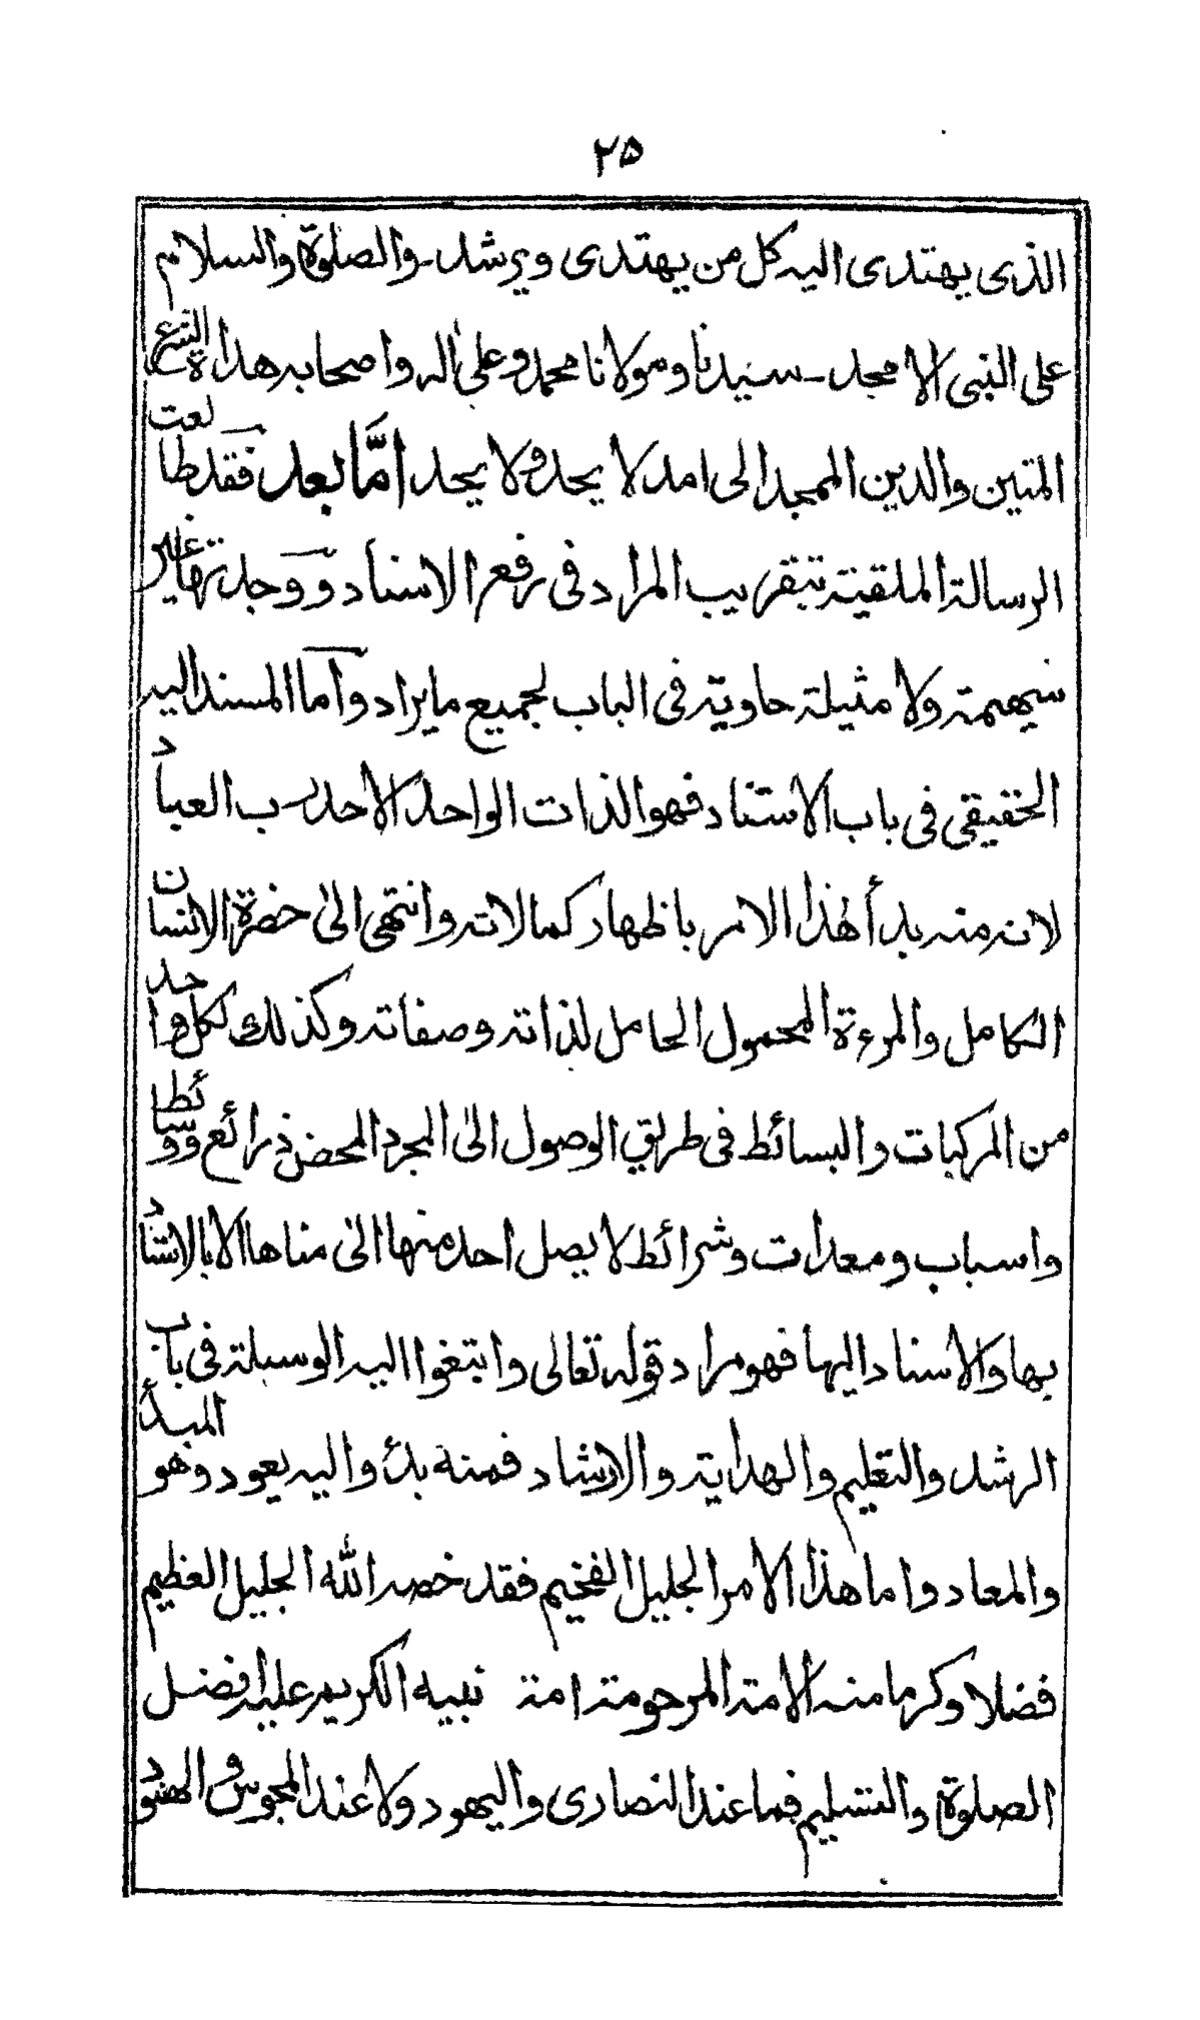 ٢٥
الذى يهتدى اليه كل من يهتدى ويرشد۔ والصلوة والسلام
على النبى الامجد۔ سيدنا ومولانا محمد وعلى اٰله واصحابه هداة الشرع
المتين والدين الممجد الى امد لا يحد ولا يحد امَّا بعد فقد طالعت
الرسالة الملقبة بتقريب المراد فى رفع الاسناد ووجدتها غير
سهيمة ولا مثيلة حاوية فى الباب لجميع ما يراد واما المسند اليه
الحقيقى فى باب الاستناد فهو الذات الواحد الاحد رب العباد
لانه منه بدأ لهذا الامر باظهار كمالاته وانتهى الىٰ حضرة الانسان
الكامل والمرءة المحمول الحامل لذاته وصفاته وكذلك لكل واحد
من المركبات والبسائط فى طريق الوصول الىٰ المجرد المحض ذرائع ووسائط
واسباب ومعدات وشرائط لا يصل احد منها الىٰ مناها الا بالاستناد
بها والاسناد اليها فهو مراد قوله تعالى وابتغوا اليه الوسيلة فى باب
الرشد والتعليم والهداية والارشاد فمنه بدأ واليه يعود وهو المبدأ
والمعاد واما هذا الامر الجليل الفخيم فقد خصه الله الجليل العظيم
فضلا وكرما منه الامة المرحومة امة نبيه الكريم عليه افضل
الصلوة والتسليم فما عند النصارى واليهود ولا عند المجوس والهنود